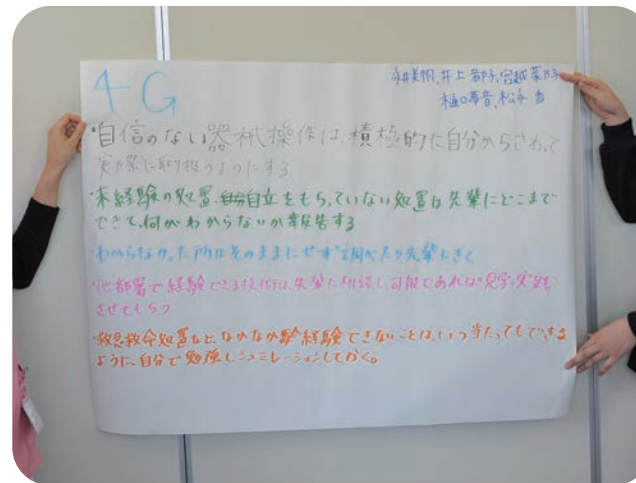 4G
井上 宮越菜
樋口 音、松
・自信のない器械操作は、積極的に自分からさわって
実際に取扱うようにする
・未経験の処置、自立をもらっていない処置は先輩にどこまで
できて、何がわからないか報告する
・わからなかった所はそのままにせず調べたり先輩にきく
・他部署で経験できる技術は、先輩に相談し可能であれば見学・実践
させてもらう
・救急救命処置など、なかなか経験できないことは、いつ当たってもできる
ように、自分で勉強しシュミレーションしておく。